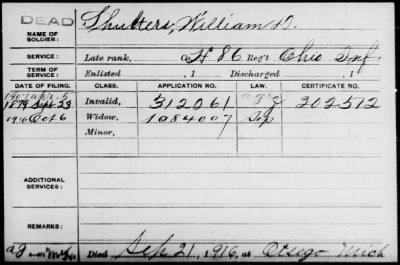 DEAD
NAME OF SOLDIER: Shutters, William D.
SERVICE: Late rank, Co. H 86 Reg't Ohio Inf.
TERM OF SERVICE: Enlisted , 1 Discharged , 1
DATE OF FILING. CLASS. APPLICATION NO. LAW. CERTIFICATE NO.
1907 Apr. 5
1879 Sept 23 Invalid, 312061 202512
1916 Oct 6 Widow, 1084007
Minor,
ADDITIONAL SERVICES:
REMARKS:
Died Sep. 21, 1916, at Otsego Mich